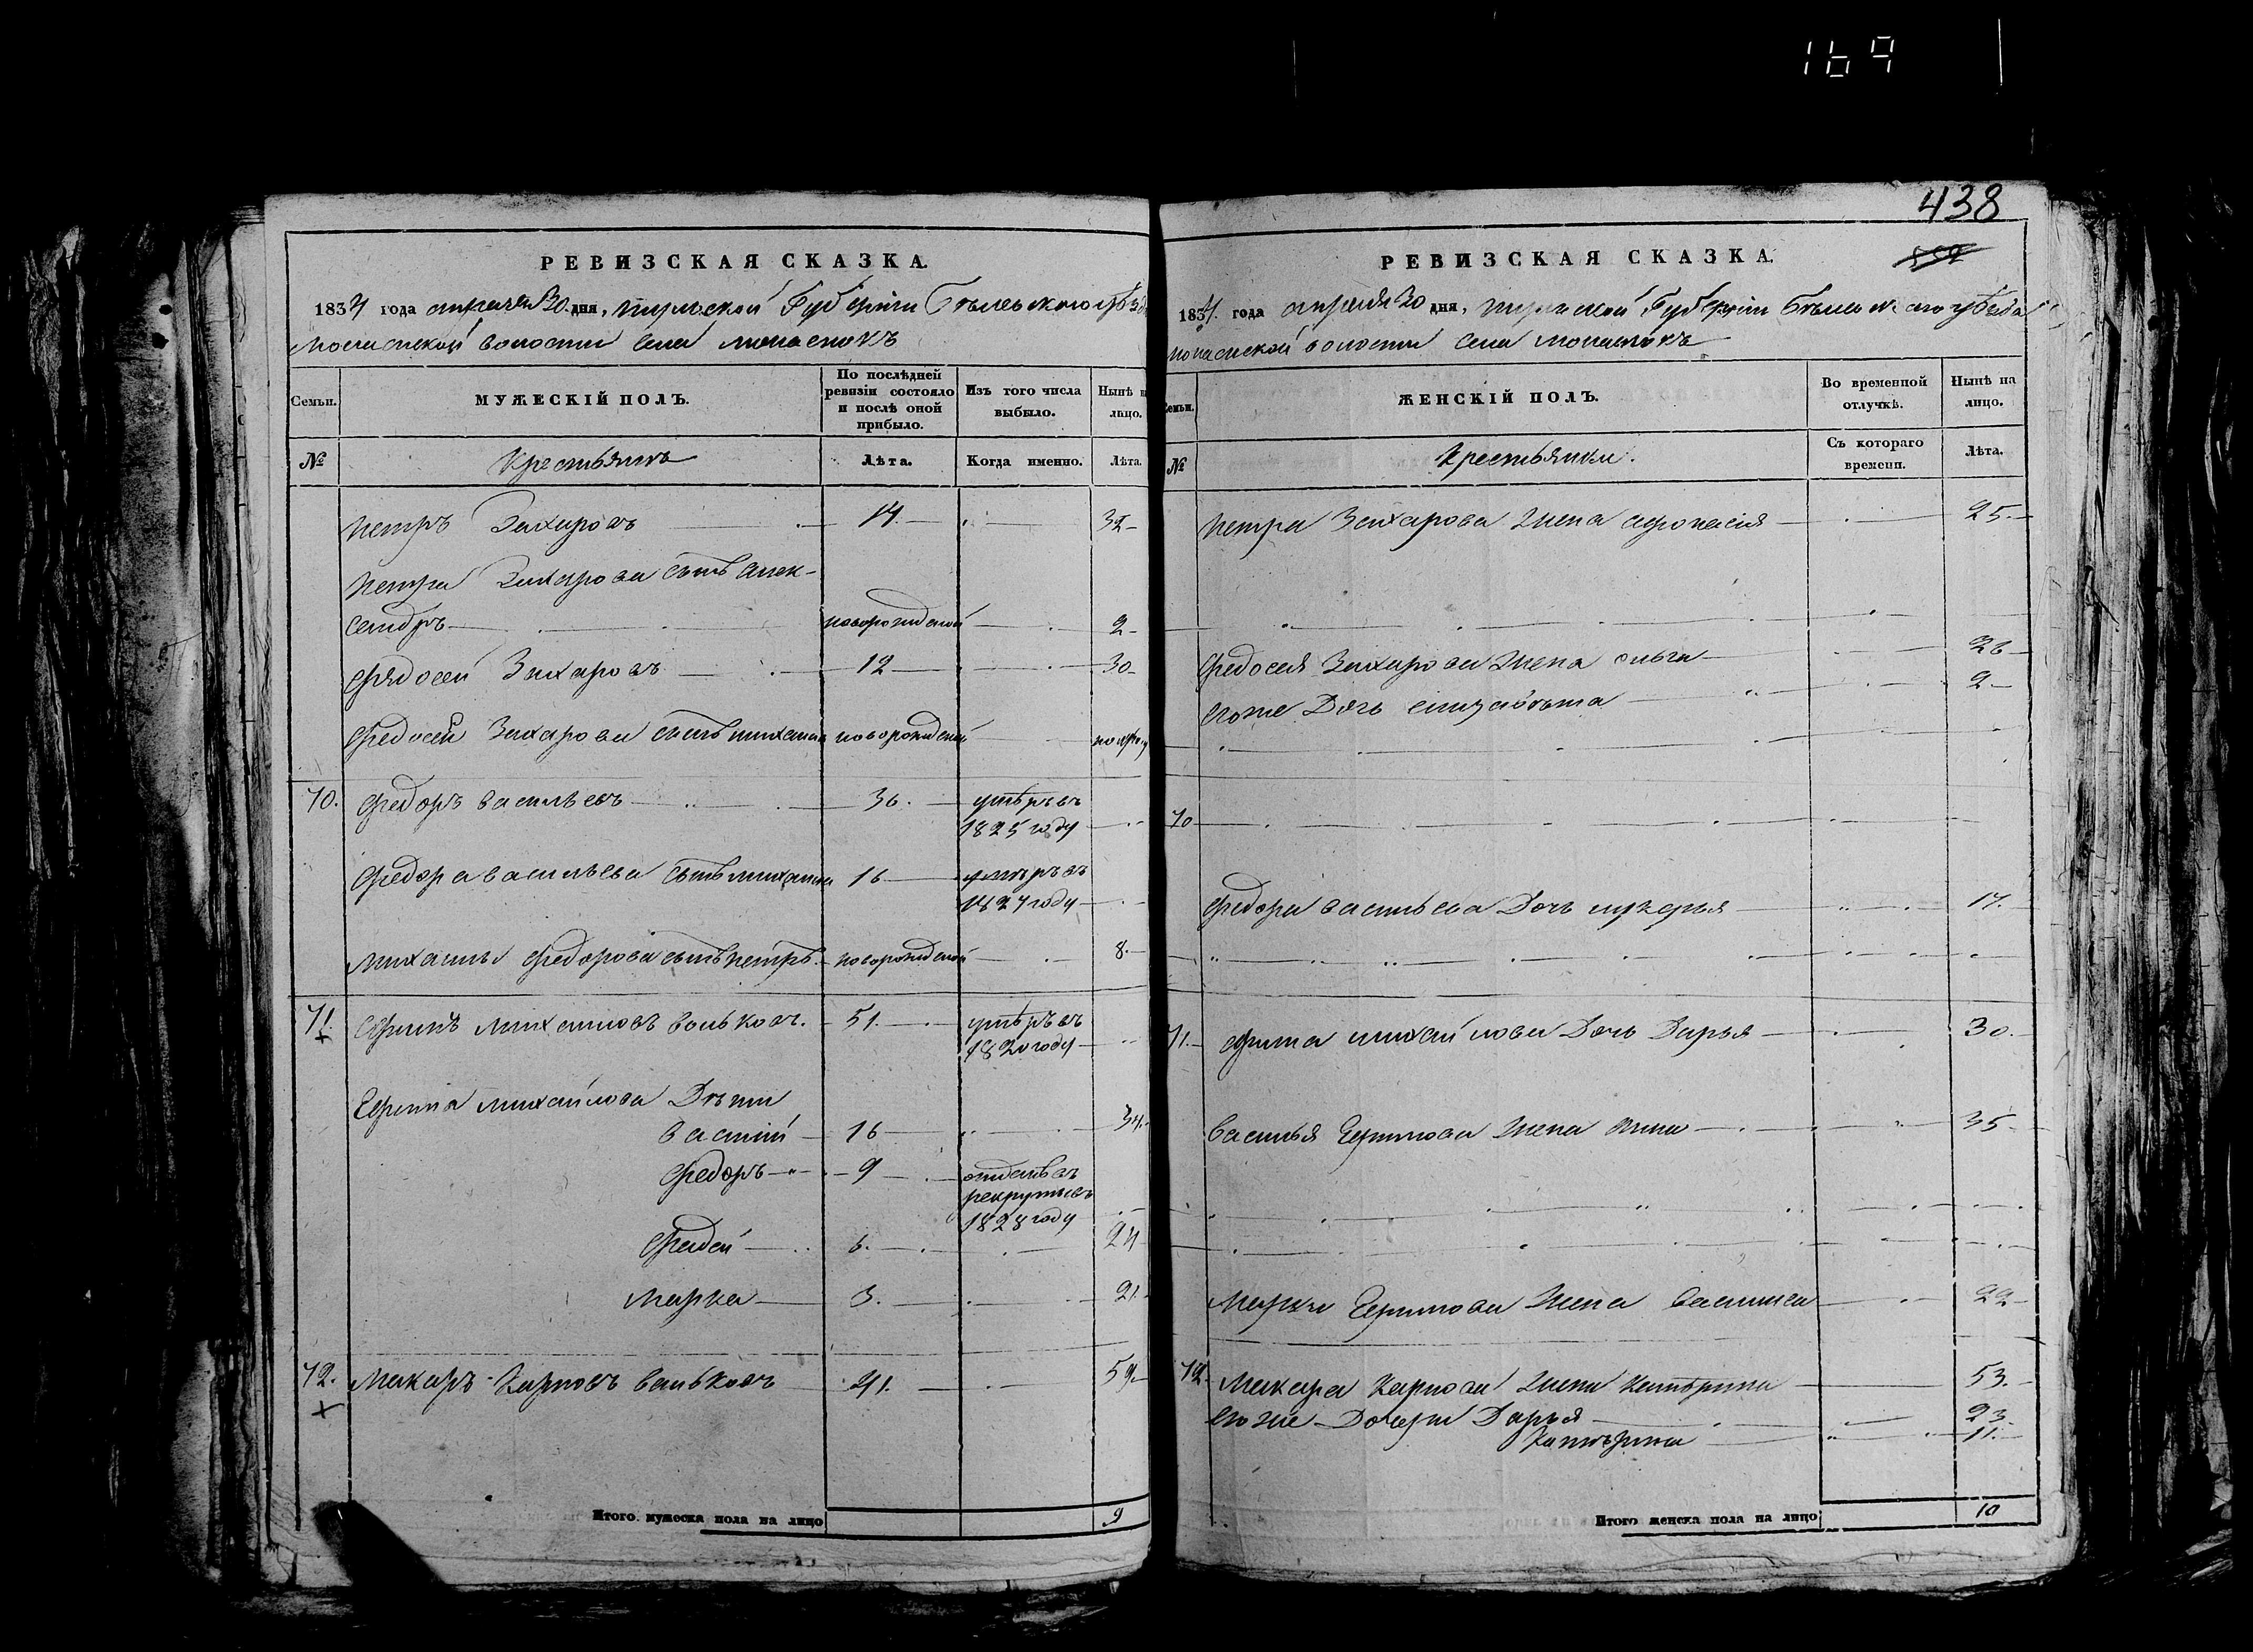 169
438
559
РЕВИЗСКАЯ СКАЗКА.
1834 года апреля 30 дня, Тульской Губернiи Бѣлевского уѣзда
волости села Монаенокъ
Семьи.
МУЖЕСКIЙ ПОЛЪ.
По послѣдней ревизiи состояло и послѣ оной прибыло.
Изъ того числа выбыло.
Нынѣ на лицо.
№
Крестьянъ
Лѣта.
Когда именно.
Лѣта.
Петръ Захаровъ 14. 32
Петра Захарова сынъ Алек-
сандръ новорожденой 2
Федосей Захаровъ 12 30
Федосея Захарова сынъ Михаила новорожденой
70. Федоръ Васильевъ 36. умѣръ въ
1825 году
Федора Васильева сынъ Михаила 16 умѣръ въ
1827 году
Михаилы Федорова сынъ Петръ новорожденой 8
71. Ефимъ Михаиловъ Вольковъ. 51. умѣръ въ
1820 году
Ефима Михайлова Дѣти
Василiй 16 34
Федоръ 9 отданъ въ
рекруты въ
1828 году
Фадей 6. 24
Марка 3. 21
72. Макаръ Карповъ Вальковъ 41. 59
Итого мужеска пола на лицо 9
РЕВИЗСКАЯ СКАЗКА.
1834. года апреля 30 дня, Тульской Губернiи Бѣлевского уѣзда
волости села Монаенокъ
Семьи.
ЖЕНСКIЙ ПОЛЪ.
Во временной отлучкѣ.
Нынѣ на лицо.
№
Крестьянки.
Съ котораго времени.
Лѣта.
Петра Захарова Жена Афонасiя 25
Федосея Захарова Жена Ольга 26
Егоже Дочь Елизавѣта 2
70
Федора Васильева Дочь Лукерья 17.
71. Ефима Михайлова Дочь Дарья 30.
Василья Ефимова Жена Анна 35
Марки Ефимова Жена Василиса 22
72. Макара Карпова Жена Катѣрина 53.
Егоже Дочери Дарья 23
Катѣрина 11.
Итого женска пола на лицо 10